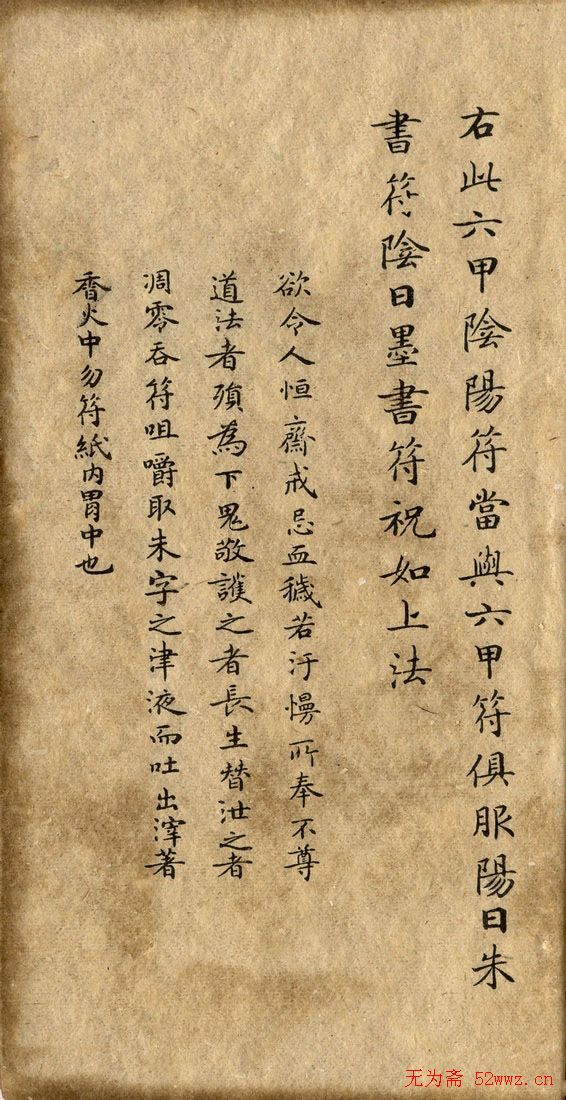 右此六甲陰陽符當與六甲符俱服陽日朱
書符陰日墨書符祝如上法
欲令人恒齋戒忌血穢若汙慢所奉不尊
道法者殞為下鬼敬護之者長生替泄之者
凋零吞符咀嚼取朱字之津液而吐出滓著
香火中勿符紙內胃中也
无为斋 52wwz.cn